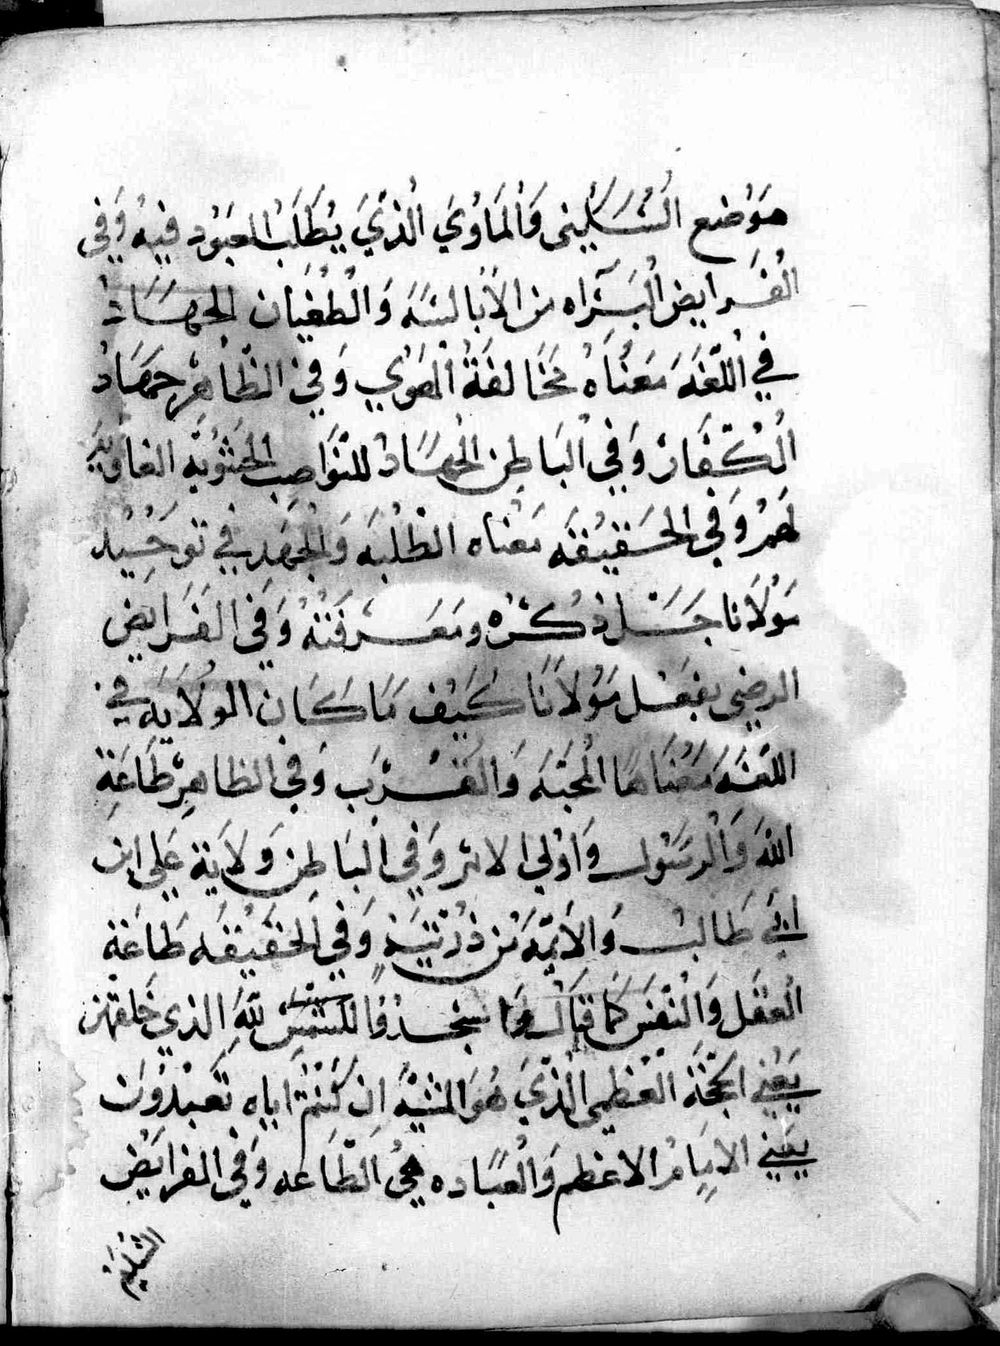 موَضع السَّكِينى وَالمَاوُيَ الذيَ يُطَلَب المعبَوُد فيهُ وَفي
الفَرايض البَرَّاه من الاَبالسَه وَالطُغيان الجهَاد
في اللّغهَ مَعنُاه مُخَالفَةُ الهوي وَفي الظّاهر جهَادُ
الكفّار وَفي البَاطِن الجهَادُ للنَّوَاصِب الحشوُيَّه الغاويَّه
لهم وَفي الحَقيقه مَعنُاه الطّلبَه وَالجهَد في توحَيُد
مَوْلانا جَل ذكُرُه ومَعرفَتهُ وَفي الفَرايض
الرضي بفعَل مَوْلانَا كَيف مَا كَان الوَلايَه في
اللغهَ مَعُناهَا المحبَه وَالقُرب وَفي الظاهِر طَاعَة
اللهَ وَالرسَوُل وَاوُلي الامر وَفي البَاطِن وَلايَة عَلي ابن
ابَي طَالبُ وَالايمّه مَن ذرّيتَهِ وَفي الحَقيقَه طَاعَة
العَقل وَالنفَس كَما قاَل وَاسَجدوُا للشَمس للّهِ الذي خَلقهن
يَعني الحجّة العَظمي الذّيَ هُو المشيّه اِن كَنتُم اياه تعَبدُوَن
يعَني الامِامُ الاعظم وَالعُبَاده هي الطّاعه وَفي الفرايَض
التسليم